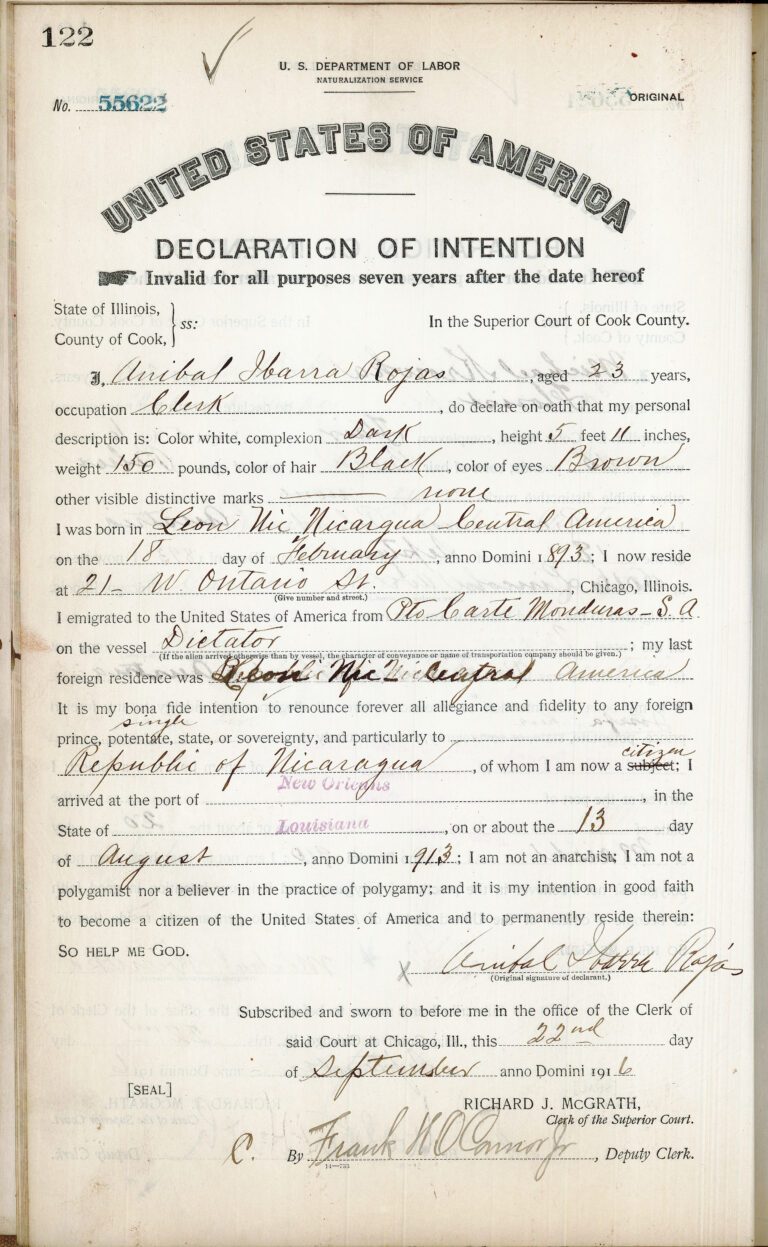 122
U. S. DEPARTMENT OF LABOR
NATURALIZATION SERVICE
No. 55622 ORIGINAL
UNITED STATES OF AMERICA
DECLARATION OF INTENTION
Invalid for all purposes seven years after the date hereof
State of Illinois,
County of Cook, ss: In the Superior Court of Cook County.
I, Anibal Ibarra Rojas, aged 23 years,
occupation Clerk, do declare on oath that my personal
description is: Color white, complexion Dark, height 5 feet 11 inches,
weight 150 pounds, color of hair Black, color of eyes Brown
other visible distinctive marks — none
I was born in Leon Nic Nicargua Central America
on the 18 day of February, anno Domini 1893; I now reside
at 21- W Ontario St., Chicago, Illinois.
(Give number and street.)
I emigrated to the United States of America from Pto Carte Monduras - S. A
on the vessel Dictator; my last
(If the alien arrived otherwise than by vessel, the character of conveyance or name of transportation company should be given.)
foreign residence was Leon Nic Nic Central America
It is my bona fide intention to renounce forever all allegiance and fidelity to any foreign
single
prince, potentate, state, or sovereignty, and particularly to
citizen
Republic of Nicaragua, of whom I am now a subject; I
New Orleans
arrived at the port of , in the
State of Louisiana, on or about the 13 day
of August, anno Domini 1913; I am not an anarchist; I am not a
polygamist nor a believer in the practice of polygamy; and it is my intention in good faith
to become a citizen of the United States of America and to permanently reside therein:
SO HELP ME GOD.
x Anibal Ibarra Rojas
(Original signature of declarant.)
Subscribed and sworn to before me in the office of the Clerk of
said Court at Chicago, Ill., this 22nd day
of September anno Domini 1916
[SEAL]
RICHARD J. McGRATH,
Clerk of the Superior Court.
C. By Frank H O'Connor Jr, Deputy Clerk.
14—733